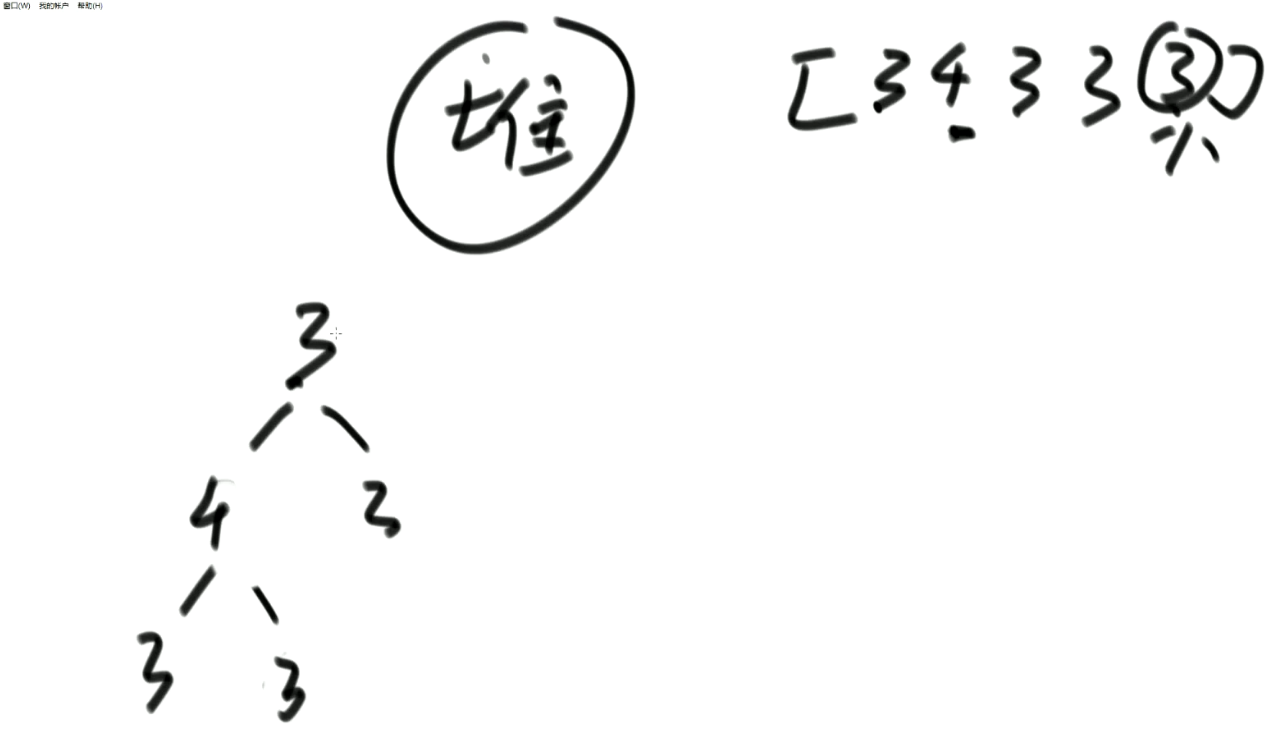 窗口(W) 我的帐户 帮助(H)
堆
[3 4 3 3 3]
3
4 3
3 3